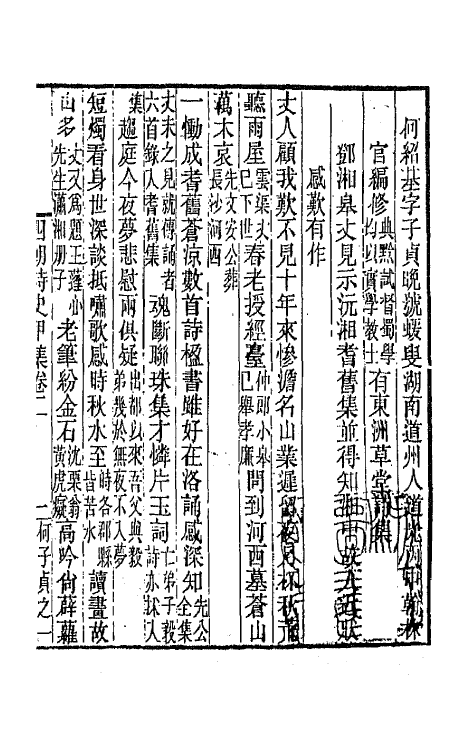 何紹基字子貞晚號蝯叟湖南道州人道光丙申翰林
官編修典黔試督蜀學均以實學教士有東洲草堂詩集
鄧湘皋丈見示沅湘耆舊集並得知湘中故人近狀
感歎有作
丈人顧我歎不見十年來慘澹名山業遲留夜月杯秋荒
聽雨屋雲渠丈已下世春老授經臺仲郎小皋已舉孝廉問到河西墓蒼山
萬木哀先文安公葬長沙河西
一慟成耆舊蒼涼數首詩楹書雖好在洛誦感深知先公全集
丈未之見就傳誦者六首錄入耆舊集魂斷聯珠集才憐片玉詞亡弟子毅詩亦狀入
集趨庭今夜夢悲慰兩俱疑出都以來吾父與毅弟幾於無夜不入夢
短燭看身世深談抵嘯歌感時秋水至時各郡縣皆苦水讀畫故
山多丈又為題王蓬心先生瀟湘册子老筆紛金石沈栗翁黃虎癡高吟尚薜蘿
四朝詩史甲集卷二 二 何子貞之一